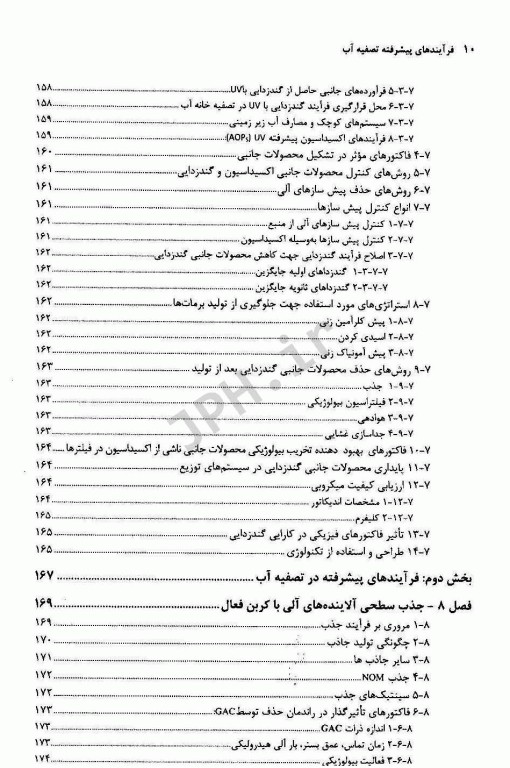 ۱۰ فرآیندهای پیشرفته تصفیه آب
۷-۳-۵ فرآورده‌های جانبی حاصل از گندزدایی با UV ۱۵۸
۷-۳-۶ محل قرارگیری فرآیند گندزدایی با UV در تصفیه خانه آب ۱۵۸
۷-۳-۷ سیستم‌های کوچک و مصارف آب زیر زمینی ۱۵۹
۷-۳-۸ فرآیندهای اکسیداسیون پیشرفته UV (AOPs) ۱۵۹
۷-۴ فاکتورهای مؤثر در تشکیل محصولات جانبی ۱۶۰
۷-۵ روش‌های کنترل محصولات جانبی اکسیداسیون و گندزدایی ۱۶۱
۷-۶ روش‌های حذف پیش سازهای آلی ۱۶۱
۷-۷ انواع کنترل پیش سازها ۱۶۱
۷-۷-۱ کنترل پیش سازهای آلی از منبع ۱۶۱
۷-۷-۲ کنترل پیش سازها به‌وسیله اکسیداسیون ۱۶۱
۷-۷-۳ اصلاح فرآیند گندزدایی جهت کاهش محصولات جانبی گندزدایی ۱۶۲
۷-۷-۳-۱ گندزداهای اولیه جایگزین ۱۶۲
۷-۷-۳-۲ گندزداهای ثانویه جایگزین ۱۶۲
۷-۸ استراتژی‌های مورد استفاده جهت جلوگیری از تولید برمات‌ها ۱۶۲
۷-۸-۱ پیش کلرآمین زنی ۱۶۲
۷-۸-۲ اسیدی کردن ۱۶۲
۷-۸-۳ پیش آمونیاک زنی ۱۶۲
۷-۹ روش‌های حذف محصولات جانبی گندزدایی بعد از تولید ۱۶۳
۷-۹-۱ جذب ۱۶۳
۷-۹-۲ فیلتراسیون بیولوژیکی ۱۶۳
۷-۹-۳ هوادهی ۱۶۳
۷-۹-۴ جداسازی غشایی ۱۶۳
۷-۱۰ فاکتورهای بهبود دهنده تخریب بیولوژیکی محصولات جانبی ناشی از اکسیداسیون در فیلترها ۱۶۴
۷-۱۱ پایداری محصولات جانبی گندزدایی در سیستم‌های توزیع ۱۶۴
۷-۱۲ ارزیابی کیفیت میکروبی ۱۶۴
۷-۱۲-۱ مشخصات اندیکاتور ۱۶۴
۷-۱۲-۲ کلیفرم ۱۶۵
۷-۱۳ تأثیر فاکتورهای فیزیکی در کارایی گندزدایی ۱۶۵
۷-۱۴ طراحی و استفاده از تکنولوژی ۱۶۵
بخش دوم: فرآیندهای پیشرفته در تصفیه آب ۱۶۷
فصل ۸ - جذب سطحی آلاینده‌های آلی با کربن فعال ۱۶۹
۸-۱ مروری بر فرآیند جذب ۱۶۹
۸-۲ چگونگی تولید جاذب ۱۷۰
۸-۳ سایر جاذب ها ۱۷۱
۸-۴ جذب NOM ۱۷۲
۸-۵ سینتیک‌های جذب ۱۷۲
۸-۶ فاکتورهای تأثیرگذار در راندمان حذف توسط GAC: ۱۷۳
۸-۶-۱ اندازه ذرات GAC ۱۷۳
۸-۶-۲ زمان تماس، عمق بستر، بار آلی هیدرولیکی ۱۷۳
۸-۶-۳ فعالیت بیولوژیکی ۱۷۴
JPH.ir